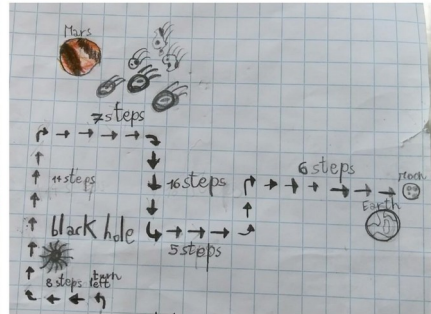 Mars
7 steps
6 steps
Moon
14 steps
16 steps
Earth
black hole
5 steps
8 steps turn left